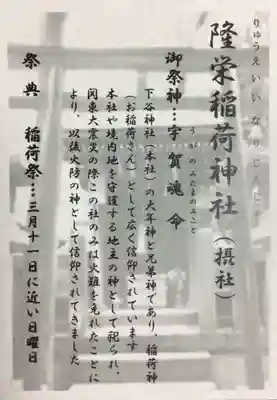 りゅうえいいなりじんじゃ
隆栄稲荷神社(摂社)
うかのみたまのみこと
御祭神…宇賀魂命
下谷神社(本社)の大年神と兄弟神であり、稲荷神
(お稲荷さん)として広く信仰されています
本社や境内地を守護する地主の神として祀られ、
関東大震災の際この社のみは火難を免れたことに
より、以後火防の神として信仰されてきました
祭典 稲荷祭…三月十一日に近い日曜日